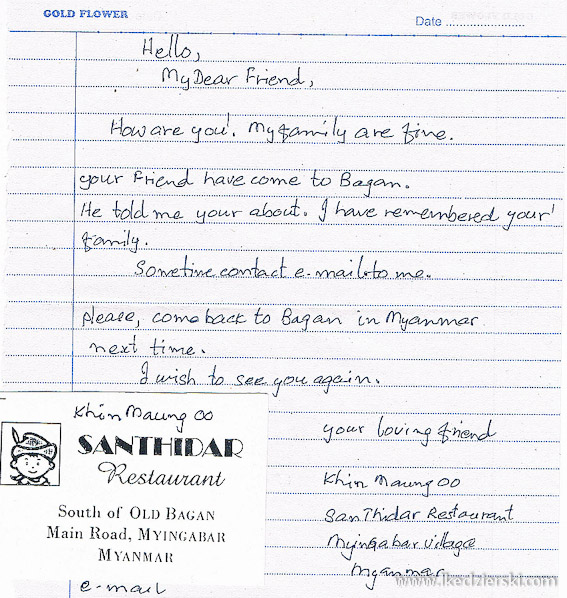 GOLD FLOWER
Date ........................
Hello,
My Dear Friend,
How are you!. My family are fine.
your Friend have come to Bagan.
He told me your about. I have remembered your'
family.
Sometime contact e-mail to me.
please, come back to Bagan in Myanmar
next time.
I wish to see you again.
your loving friend
Khin Maung OO
SanThidar Restaurant
Myingabar village
Myanmar
Khin Maung OO
SANTHIDAR
Restaurant
South of OLD BAGAN
Main Road, MYINGABAR
MYANMAR
e-mail
www.lkedzierski.com